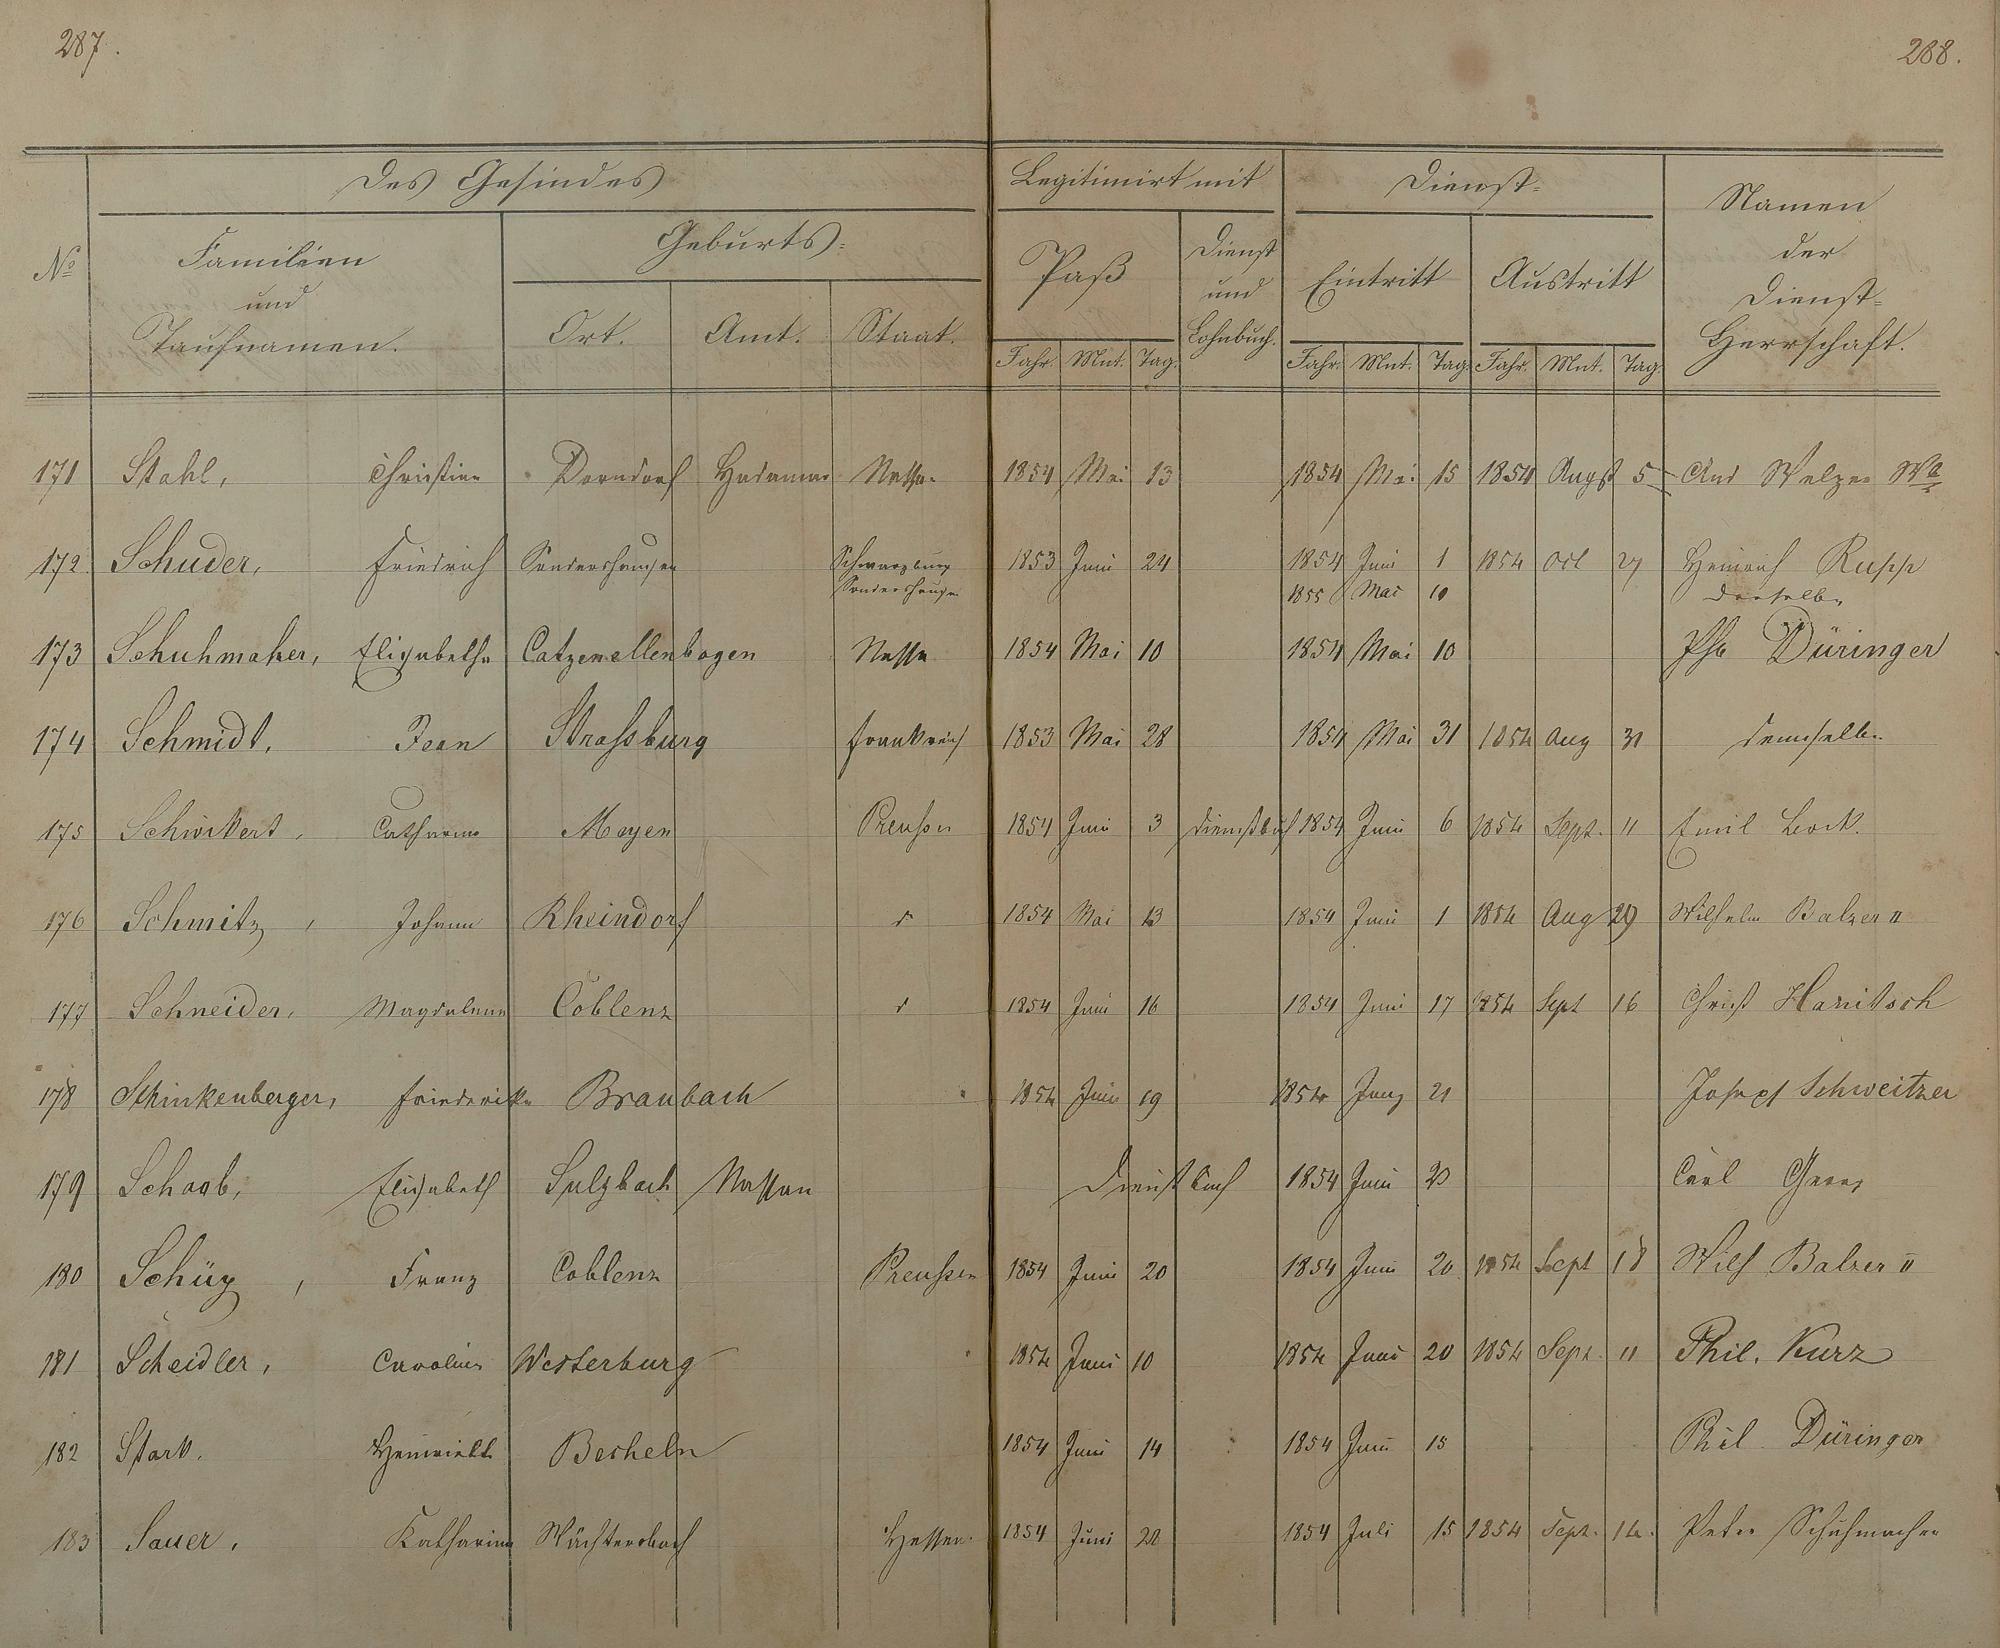 287.
288.
Des Gesindes
Legitimirt mit
Dienst-
Namen
der
Dienst-
Herrschaft.
No
Familien
und
Taufnamen.
Geburts-
Ort.
Amt.
Staat.
Paß
Dienst
und
Lohnbuch.
Eintritt
Austritt
Jahr. Mnt. Tag. Jahr. Mnt. Tag. Jahr. Mnt. Tag
171 Stahl, Christian Dorndorf Hadamar Nassau 1854 Mai 13 1854 Mai 15 1854 Augst 5 And Welzer Wb
172 Schuder, Friedrich Sondershausen Schwarzburg 1853 Juni 24 1854 Juni 1 1854 Oct 27 Heinrich Rupp
Sondershausen 1855 Mai 10 derselbe
173 Schuhmaher, Elisabetha Catzenellenbogen Nassau 1854 Mai 10 1854 Mai 10 Phil Düringer
174 Schmidt, Jean Strassburg Frankreich 1853 Mai 28 1854 Mai 31 1854 Aug 31 demselben
175 Schwikert, Catharina Meyen Preussen 1854 Juni 3 Dienstbuch 1854 Juni 6 1854 Sept. 11 Emil Bock.
176 Schmitz, Johann Rheindorf d 1854 Mai 13 1854 Juni 1 1854 Aug 29 Wilhelm Balzer II
177 Schneider, Magdalena Coblenz d 1854 Juni 16 1854 Juni 17 1854 Sept 16 Christ Hanitsch
178 Schinkenberger, Friederike Braubach " 1854 Juni 19 1854 Juny 21 Joseph Schweitzer
179 Schaab, Elisabeth Sulzbach Nassau Dienstbuch 1854 Juni 20 Carl Georg
180 Schüz, Franz Coblenz Preussen 1854 Juni 20 1854 Juni 20 1854 Sept 18 Wilh Balzer II
181 Scheidler, Caroline Westerburg " 1854 Juni 10 1854 Juni 20 1854 Sept. 11 Phil. Kurz
182 Stark. Henriette Becheln 1854 Juni 14 1854 Juni 15 Phil Düringer
183 Sauer, Katharina Wächtersbach Hessen 1854 Juni 28 1854 Juli 15 1854 Sept. 14. Peter Schuhmacher